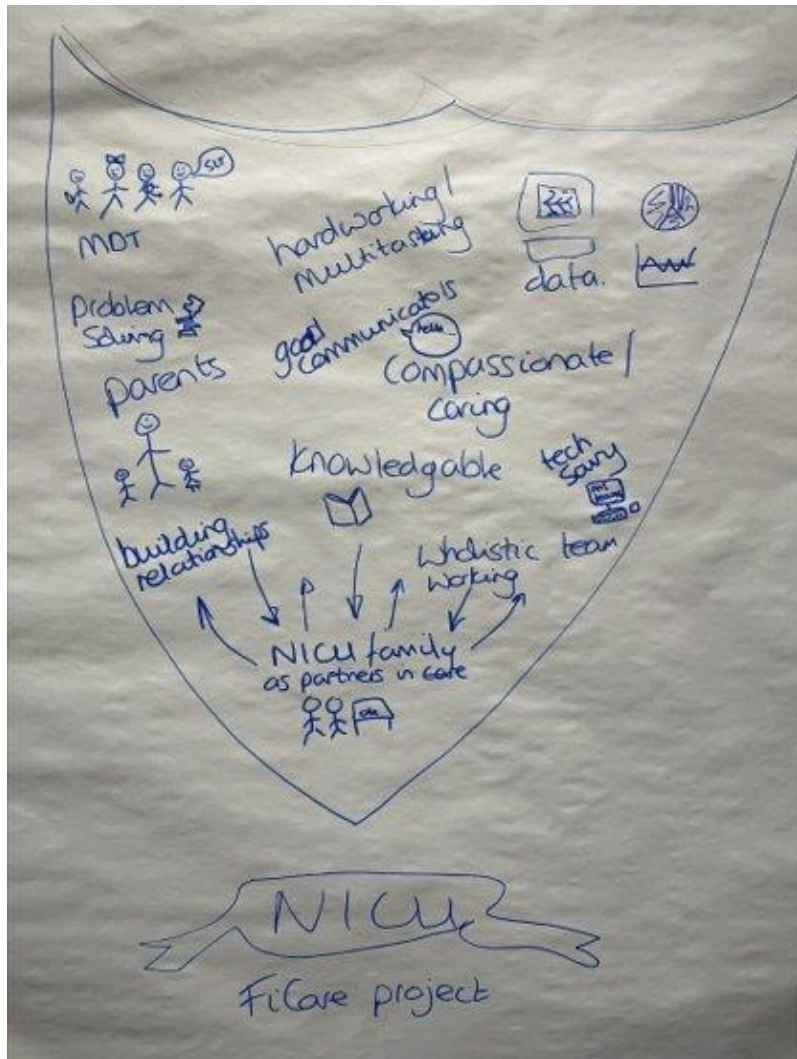 SLT
MDT
hardworking /
multitasking
data.
problem
solving
good
communicators
hello...
parents
compassionate /
caring
knowledgable
tech
savvy
building
relationships
wholistic team
working
NICU family
as partners in care
NICU
FiCare project